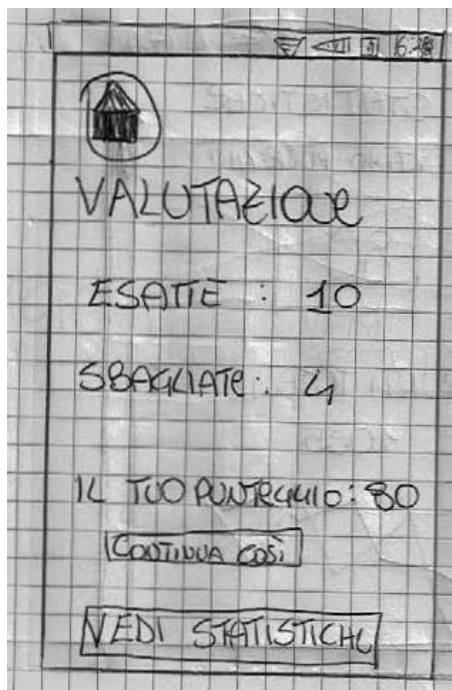 6:48
VALUTAZIONE
ESATTE : 10
SBAGLIATE : 4
IL TUO PUNTEGGIO : 80
CONTINUA COSÌ
VEDI STATISTICHE